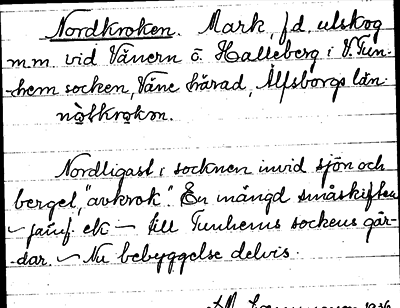 Nordkroken. Mark, f.d. utskog
m.m. vid Vänern ö. Halleberg i V. Tun-
hem socken, Väne härad, Älfsborgs län.
nọ̀lkrọkọn.
Nordligast i socknen invid sjön och
berget, "avkrok". En mängd småskiften
till Tunhems sockens går-
dar. – Nu bebyggelse delvis.
1936